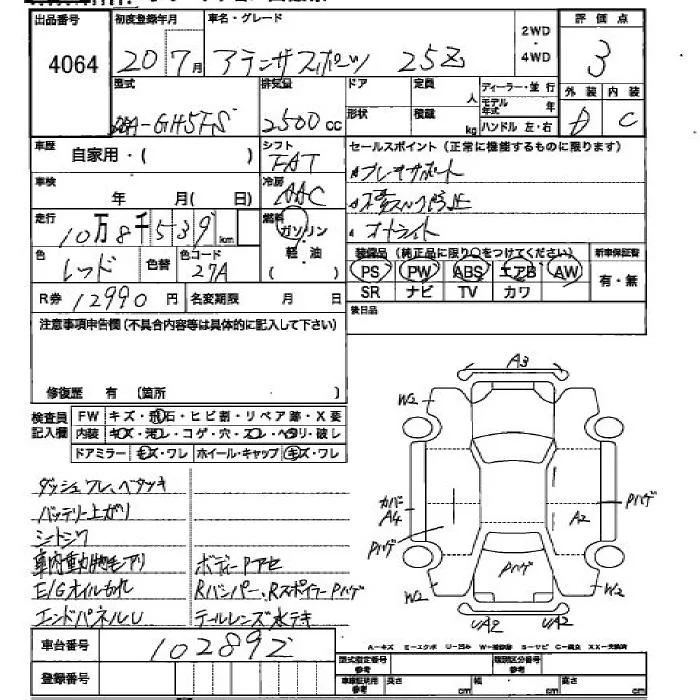 出品番号 初度登録年月 車名・グレード 2WD・4WD 評価点
4064 20 7月 アテンザスポーツ 25Z 3
型式 排気量 ドア 定員 人 ディーラー・並行 外装 内装
DBA-GH5FS 2500cc 形状 積載 kg モデル年式 年 ハンドル 左・右 D C
車歴 自家用・( ) シフト FAT セールスポイント(正常に機能するものに限ります)
車検 年 月(日) 冷房 AAC
走行 10万8千539km 燃料 ガソリン 軽・油 オートライト
色 レッド 色替 色コード 27A 装備品(純正品に限り○をつけてください) 新車保証書
PS PW ABS エアB AW 有・無
R券 12990円 名変期限 月 日 SR ナビ TV カワ
注意事項申告欄(不具合内容等は具体的に記入して下さい) 後日品
修復歴 有 〔箇所 〕
検査員記入欄 FW キズ・飛石・ヒビ割・リペア跡・X要
内装 キズ・汚レ・コゲ・穴・スレ・ヘタリ・破レ
ドアミラー キズ・ワレ ホイール・キャップ キズ・ワレ
A3
W2
カバーA4 A2 Pハゲ
Pハゲ Pハゲ
W2 W2
UA2 UA2
ダッシュワレ、ベタツキ
バッテリー上がり
車内動物毛アリ ボディーPアセ
E/Gオイルもれ Rバンパー、RスポイラーPハゲ
エンドパネルU テールレンズ水テキ
車台番号 102892 A-キズ
登録番号 型式指定番号 参考 類別区分番号 参考
長さ cm 幅 cm 高さ cm